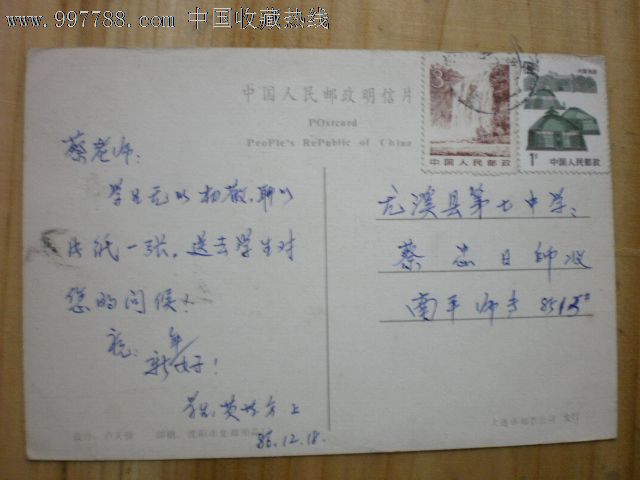 www.997788.com 中国收藏热线
中国人民邮政明信片
Postcard
People's Republic of China
3
中国人民邮政
中国人民邮政
蔡老师:
学生无以相敬,聊以
片纸一张,送去学生对
您的问候!
祝:
新年好!
学生:黄 上
86.12.18.
尤溪县第七中学:
蔡忠日师收
南平师专